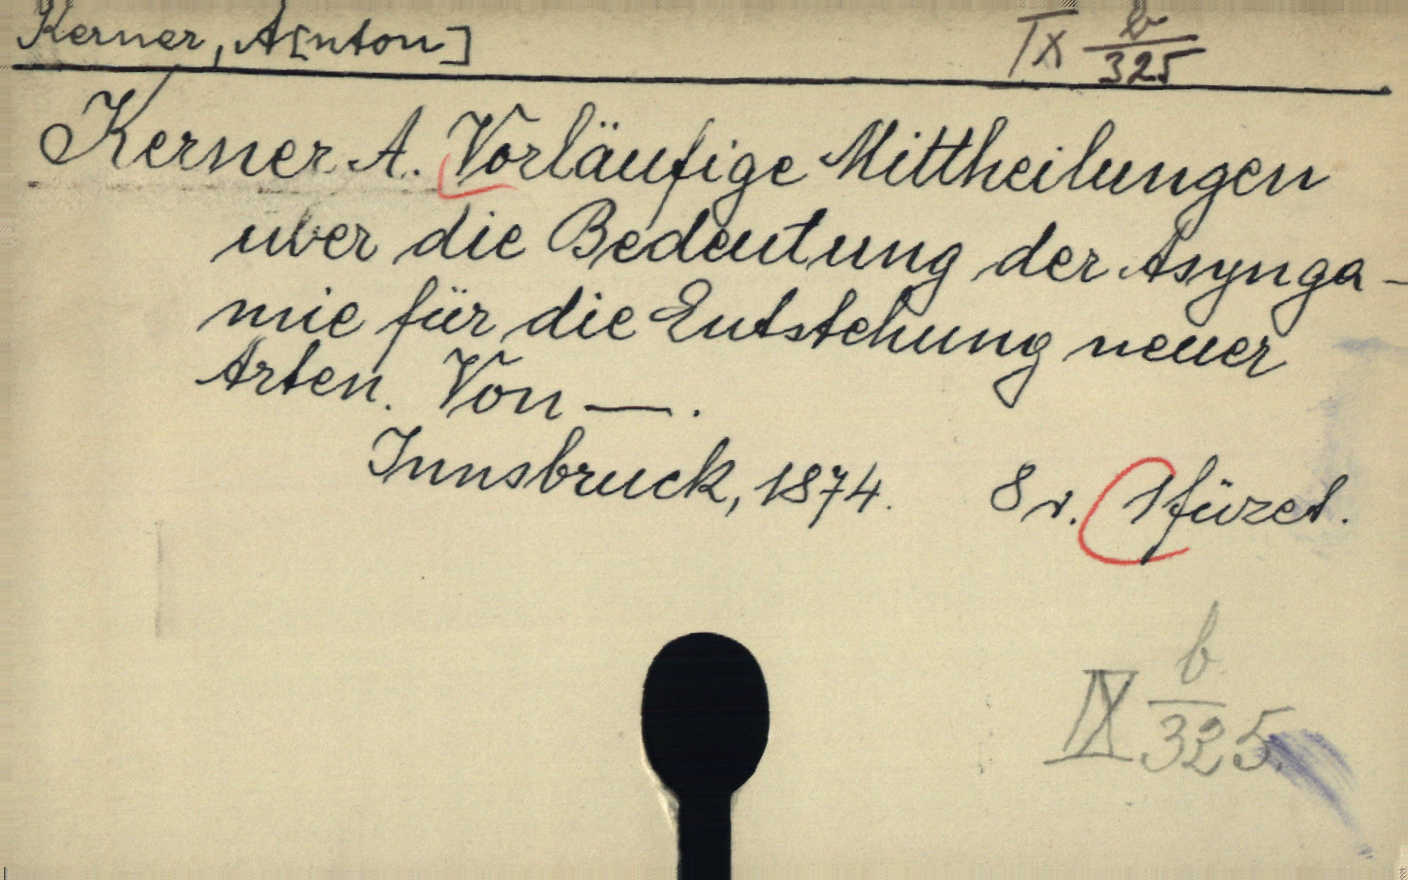 Kerner, A[nton]
IX b/325
Kerner A. Vorläufige Mittheilungen
uber die Bedeutung der Asynga-
mie für die Entstehung neuer
Arten. Von —.
Innsbruck, 1874. 8r. 1 füzet.
IX b/325.